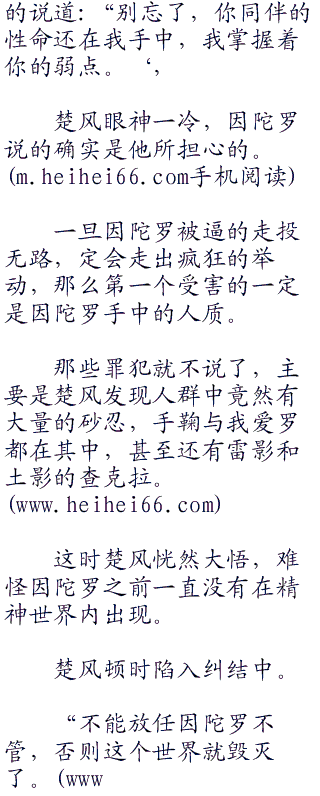 的说道：“别忘了，你同伴的
性命还在我手中，我掌握着
你的弱点。‘，
楚风眼神一冷，因陀罗
说的确实是他所担心的。
(m.heihei66.com手机阅读)
一旦因陀罗被逼的走投
无路，定会走出疯狂的举
动，那么第一个受害的一定
是因陀罗手中的人质。
那些罪犯就不说了，主
要是楚风发现人群中竟然有
大量的砂忍，手鞠与我爱罗
都在其中，甚至还有雷影和
土影的查克拉。
(www.heihei66.com)
这时楚风恍然大悟，难
怪因陀罗之前一直没有在精
神世界内出现。
楚风顿时陷入纠结中。
“不能放任因陀罗不
管，否则这个世界就毁灭
了。(www